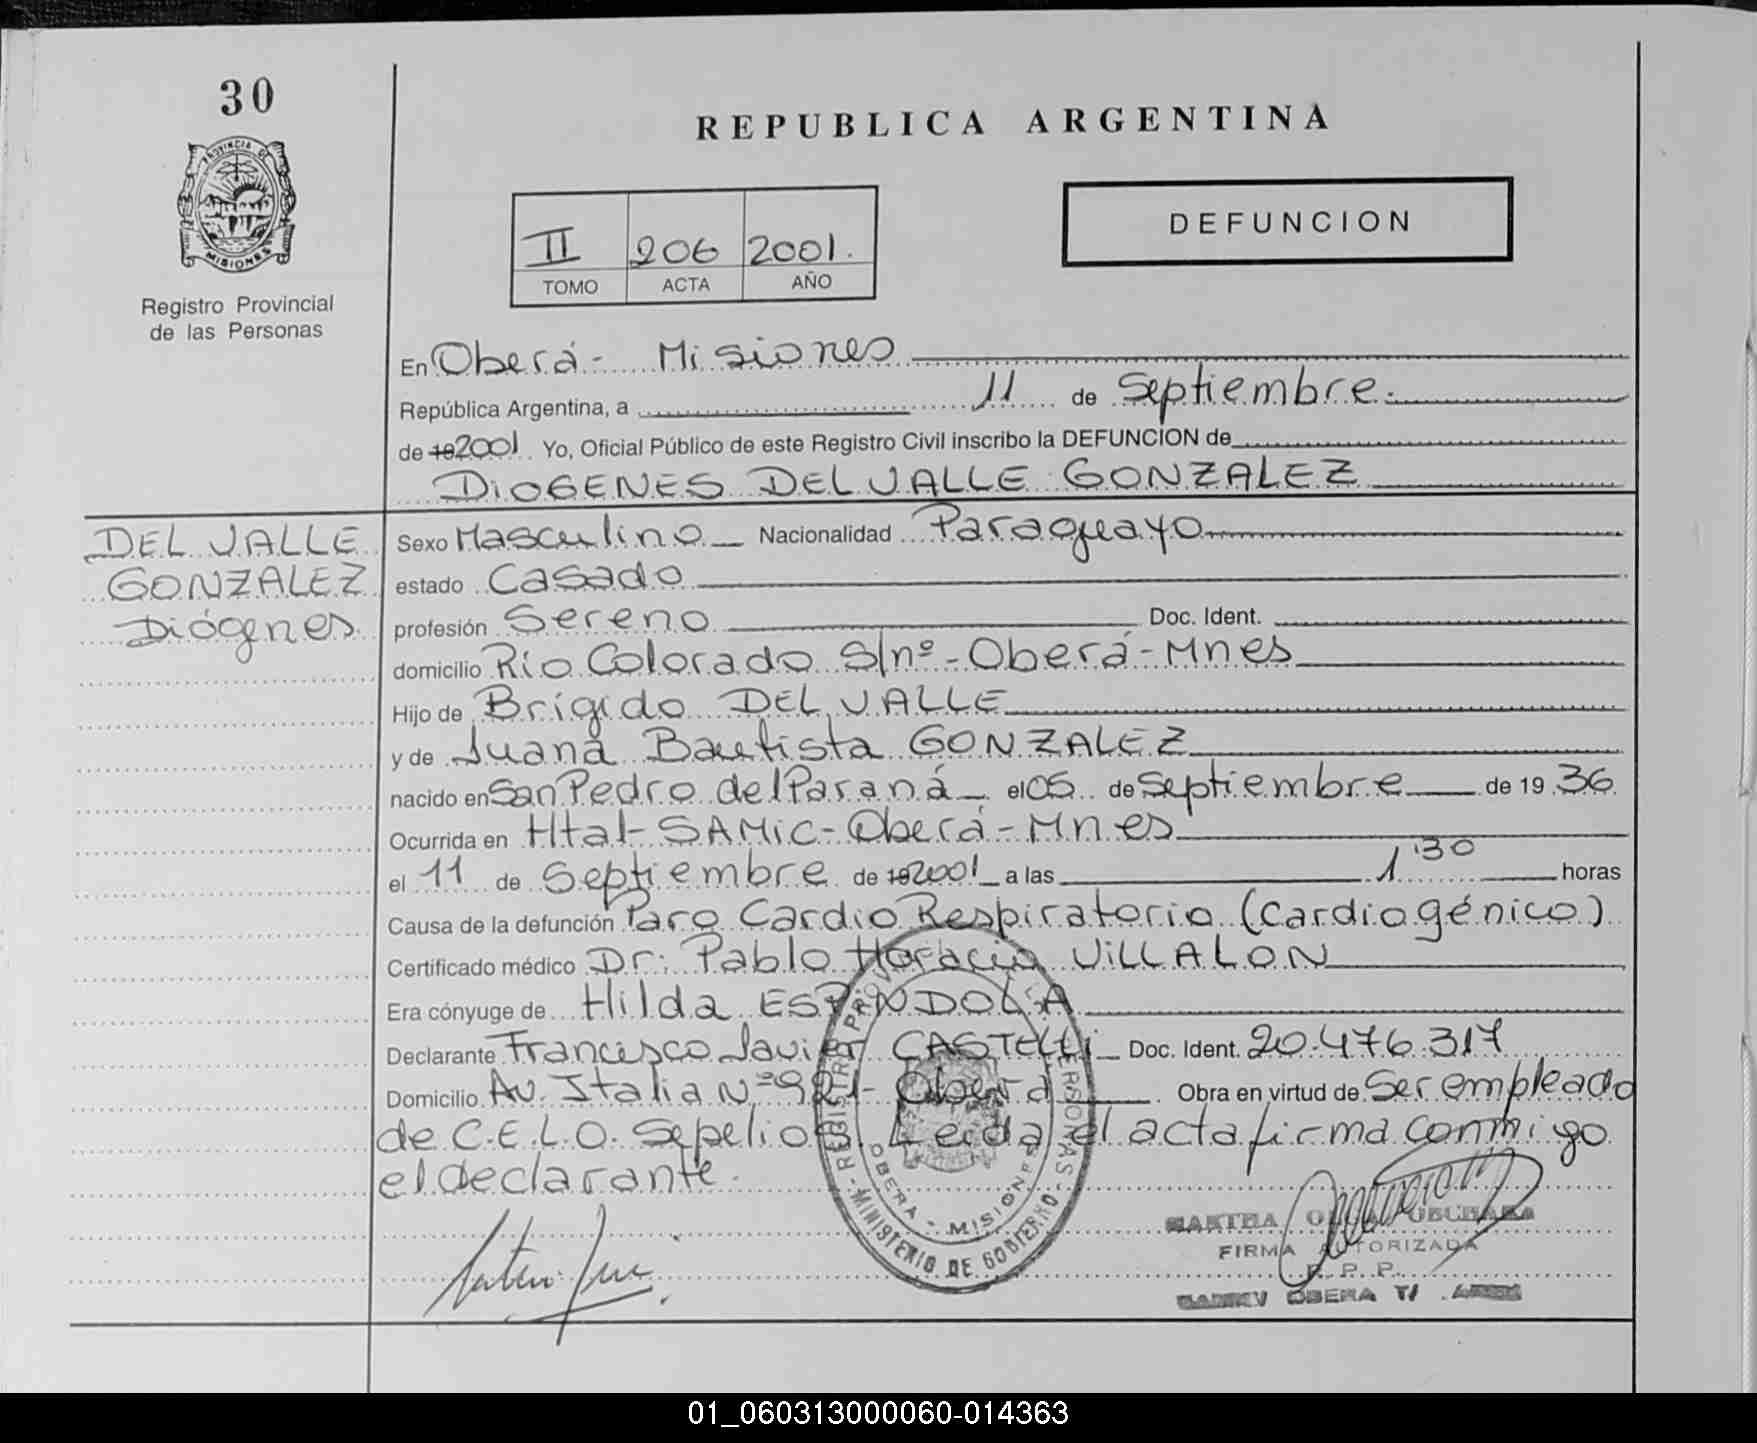 30
PROVINCIA DE
MISIONES
Registro Provincial
de las Personas
REPUBLICA ARGENTINA
II 206 2001.
TOMO ACTA AÑO
DEFUNCION
En Oberá - Misiones
República Argentina, a 11 de Septiembre.
de 19 2001 Yo, Oficial Público de este Registro Civil inscribo la DEFUNCION de
DIOGENES DEL VALLE GONZALEZ
DEL VALLE
GONZALEZ
Diógenes
Sexo Masculino Nacionalidad Paraguayo
estado Casado
profesión Sereno Doc. Ident.
domicilio Río Colorado S/nº - Oberá - Mnes
Hijo de Brígido DEL VALLE
y de Juana Bautista GONZALEZ
nacido en San Pedro del Paraná el 05 de Septiembre de 19 36
Ocurrida en Htal - SAMIC - Oberá - Mnes
el 11 de Septiembre de 19 2001 a las 1'30 horas
Causa de la defunción Paro Cardio Respiratorio (Cardiogénico)
Certificado médico Dr: Pablo Horacio VILLALON
Era cónyuge de Hilda ESPINDOLA
Declarante Francisco Javier CASTELLI Doc. Ident. 20.476.317
Domicilio Av. Italia Nº 921 - Oberá Obra en virtud de Ser empleado
de C.E.L.O. Sepelios. Leída el acta firma conmigo
el declarante.
OBERA - MISIONES
MINISTERIO DE GOBIERNO
MARTHA
FIRMA AUTORIZADA
R. P. P.
OBERA
01_060313000060-014363